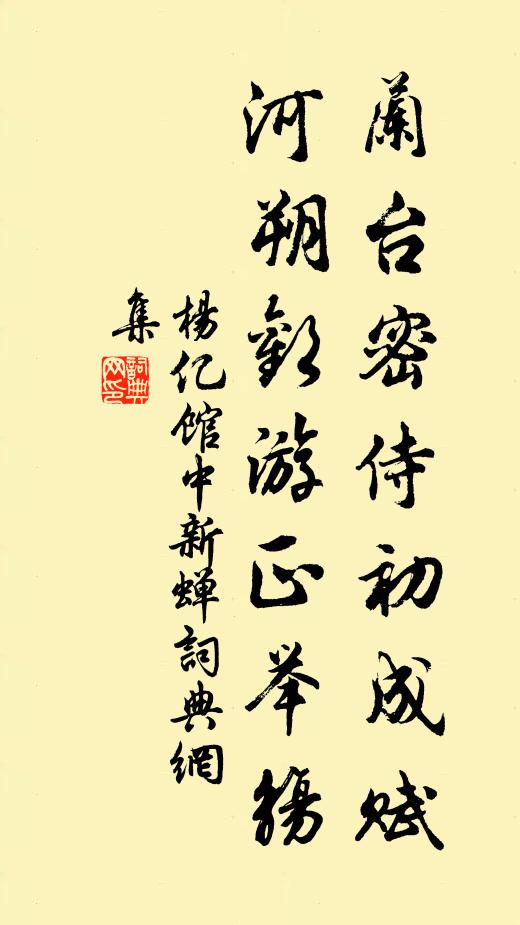 蘭台密侍初成賦
河朔歡游正举觴
楊亿館中新蝉詞典網
集
詞典网印